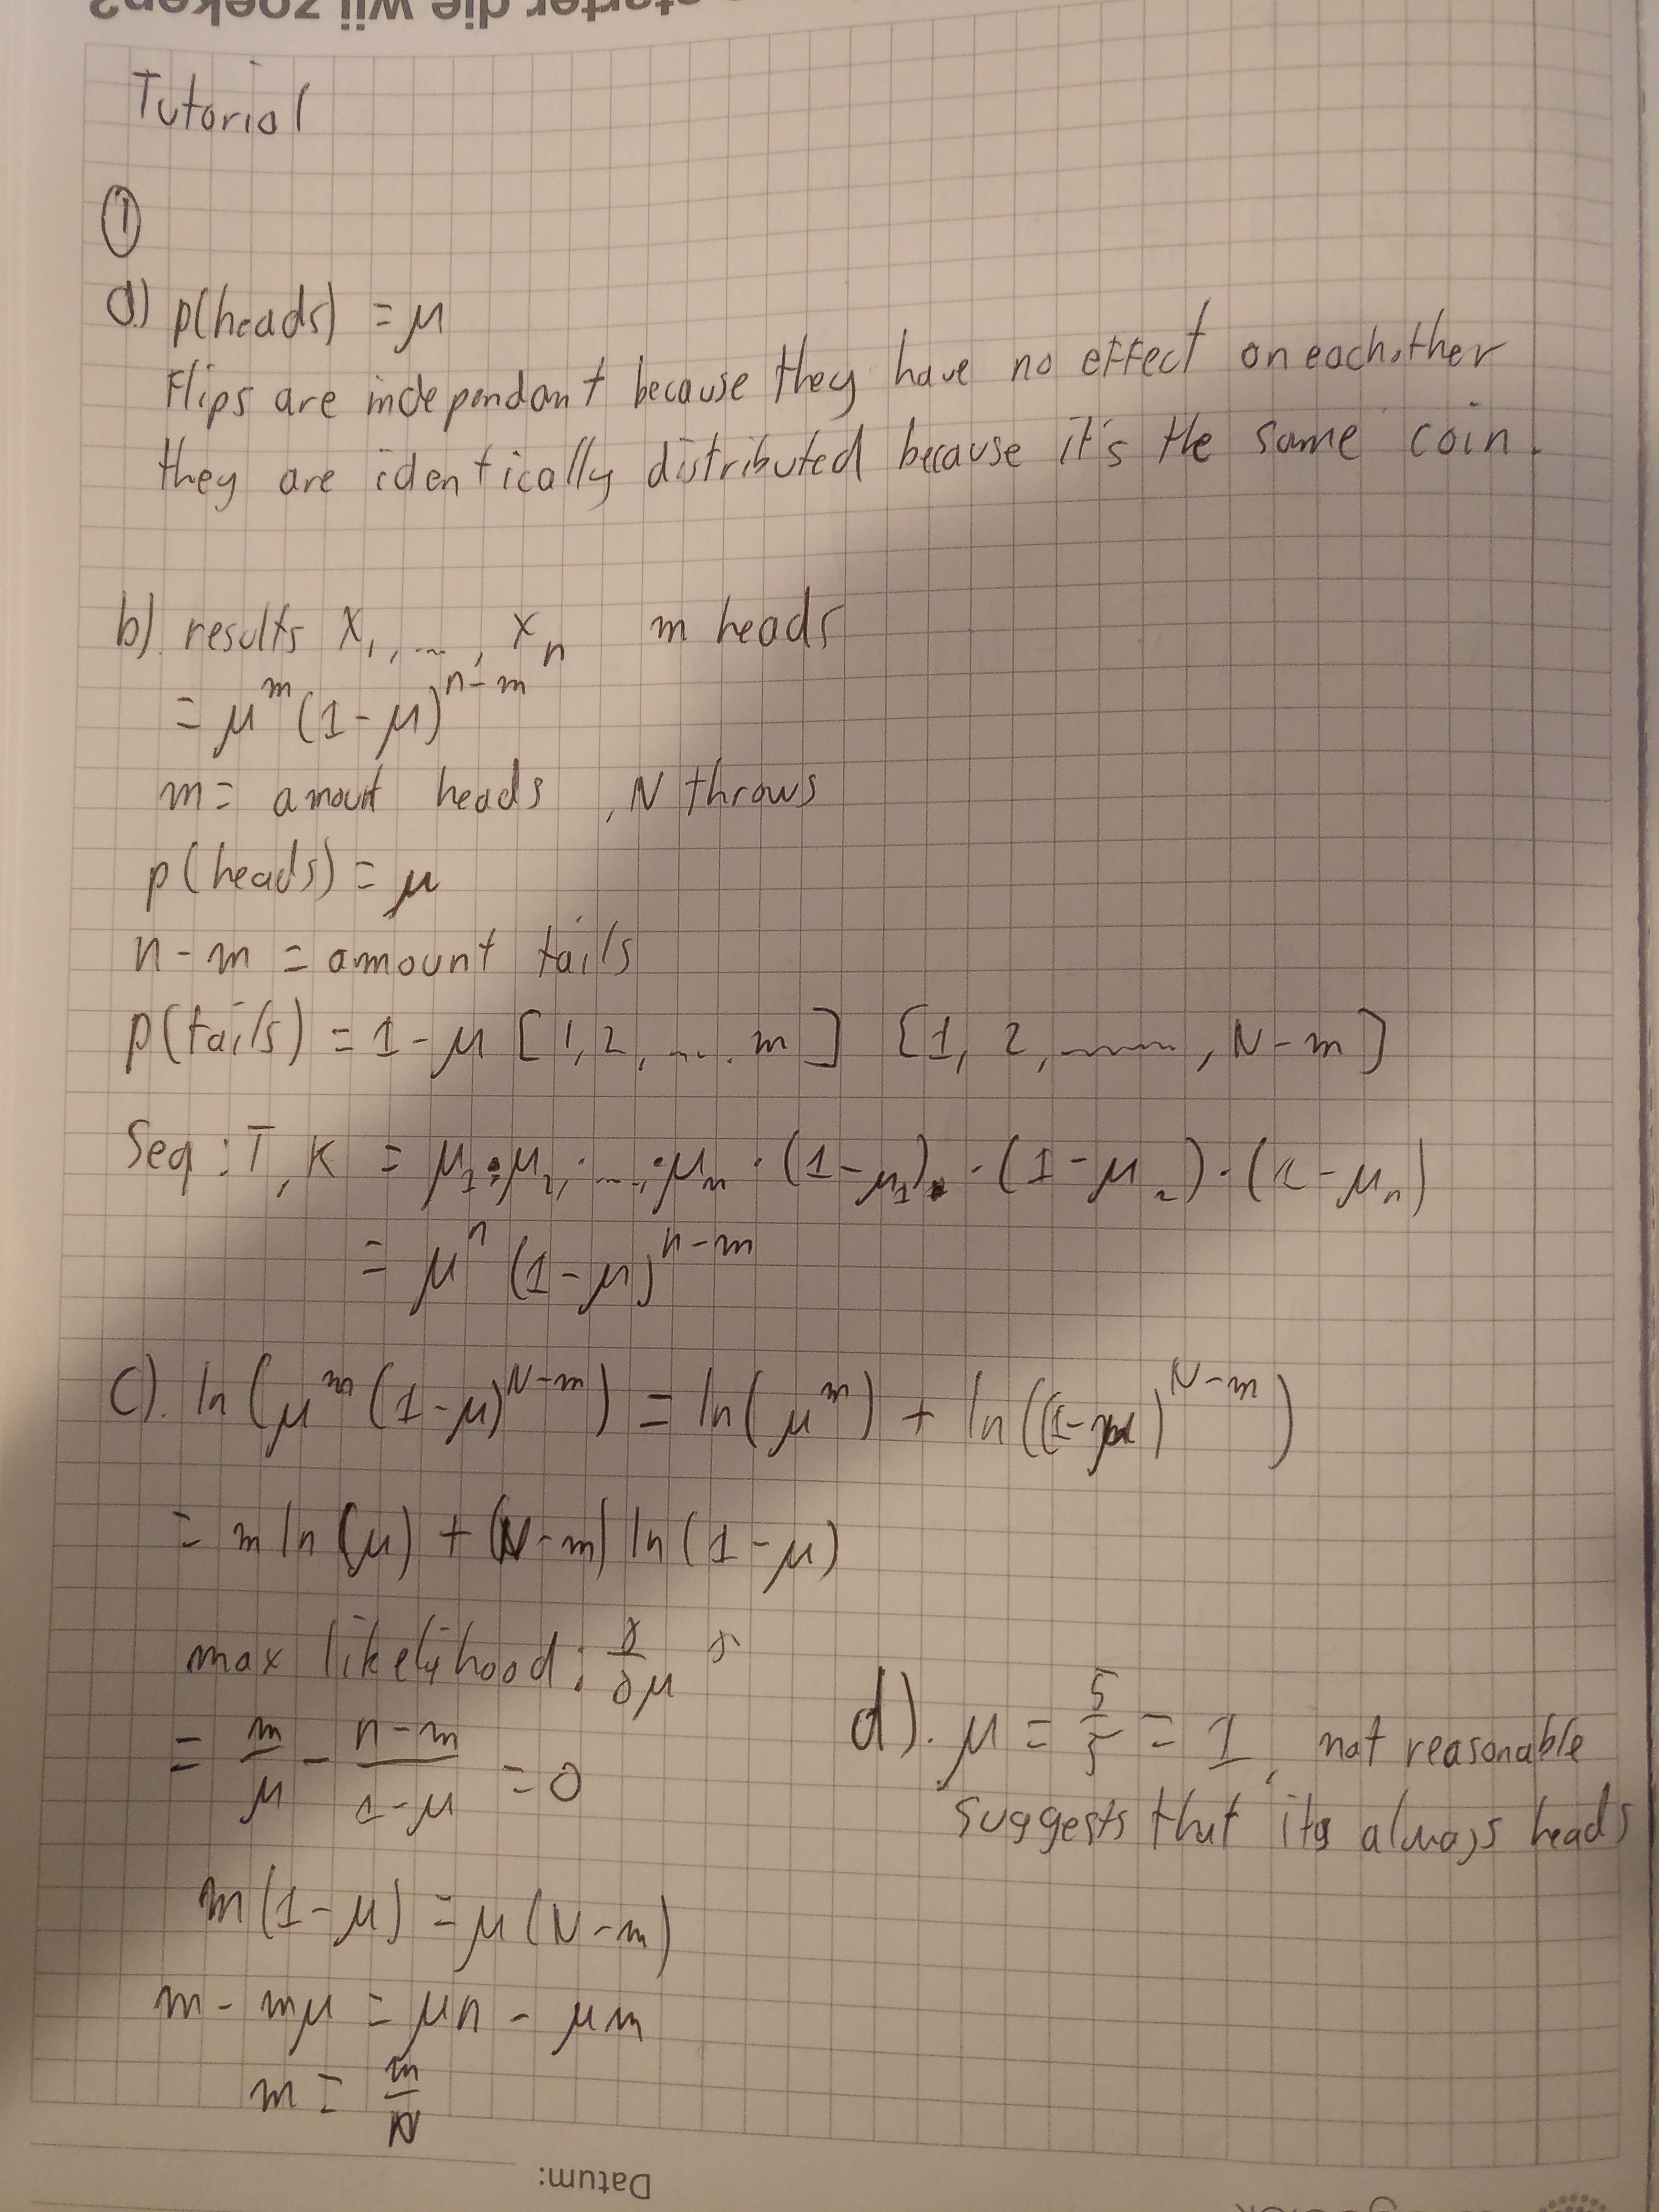 starter die wij zoeken?
Tutorial
①
a) p(heads) = μ
Flips are independant because they have no effect on eachother
they are identically distributed because it's the same coin.
b) results x₁, ..., xₙ m heads
= μ^m (1-μ)^(n-m)
m = amount heads , N throws
p(heads) = μ
n-m = amount tails
p(tails) = 1-μ [1,2,....m] [1, 2, ......, N-m]
Seq: T, K = μ₁·μ₂·...·μₙ · (1-μ₁) · (1-μ₂) · (1-μₙ)
= μ^n (1-μ)^(n-m)
c). ln(μ^m (1-μ)^(N-m)) = ln(μ^m) + ln((1-μ)^(N-m))
= m ln(μ) + (N-m) ln(1-μ)
max likelyhood: ∂/∂μ
= m/μ - (n-m)/(1-μ) = 0
m(1-μ) = μ(N-m)
m - mμ = μn - μm
m = m/N
d). μ = 5/5 = 1, not reasonable
suggests that its always heads
Datum: